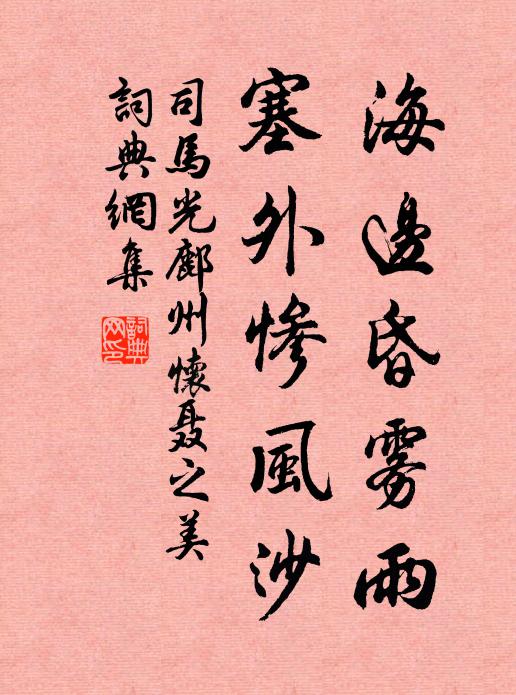 海邊昏霧雨
塞外慘風沙
司馬光鄜州懷聶之美
詞典網集
詞典网印